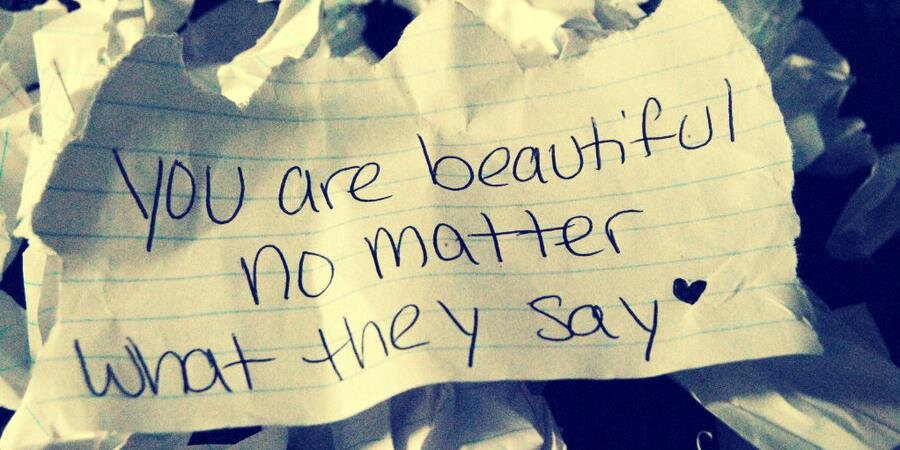 you are beautiful
no matter
what they say♥